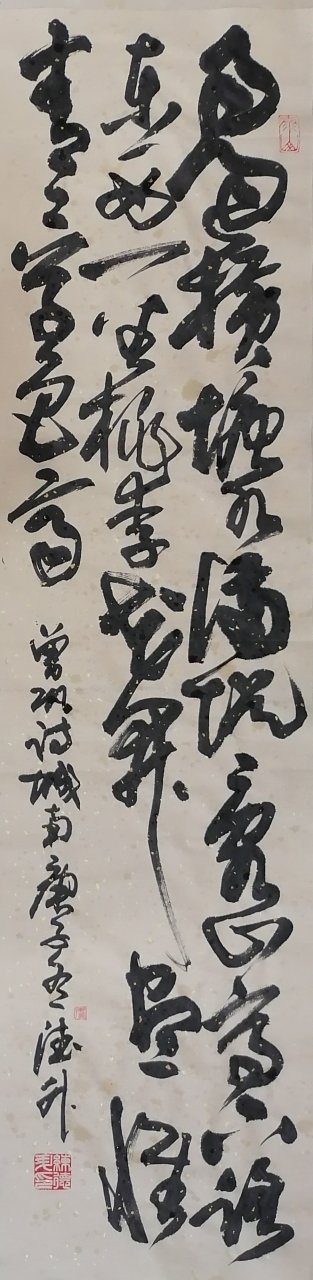 雨過橫塘水滿堤亂山高下路
東西一番桃李花開盡惟
有青青草色齊
曾鞏詩城南庚子德升